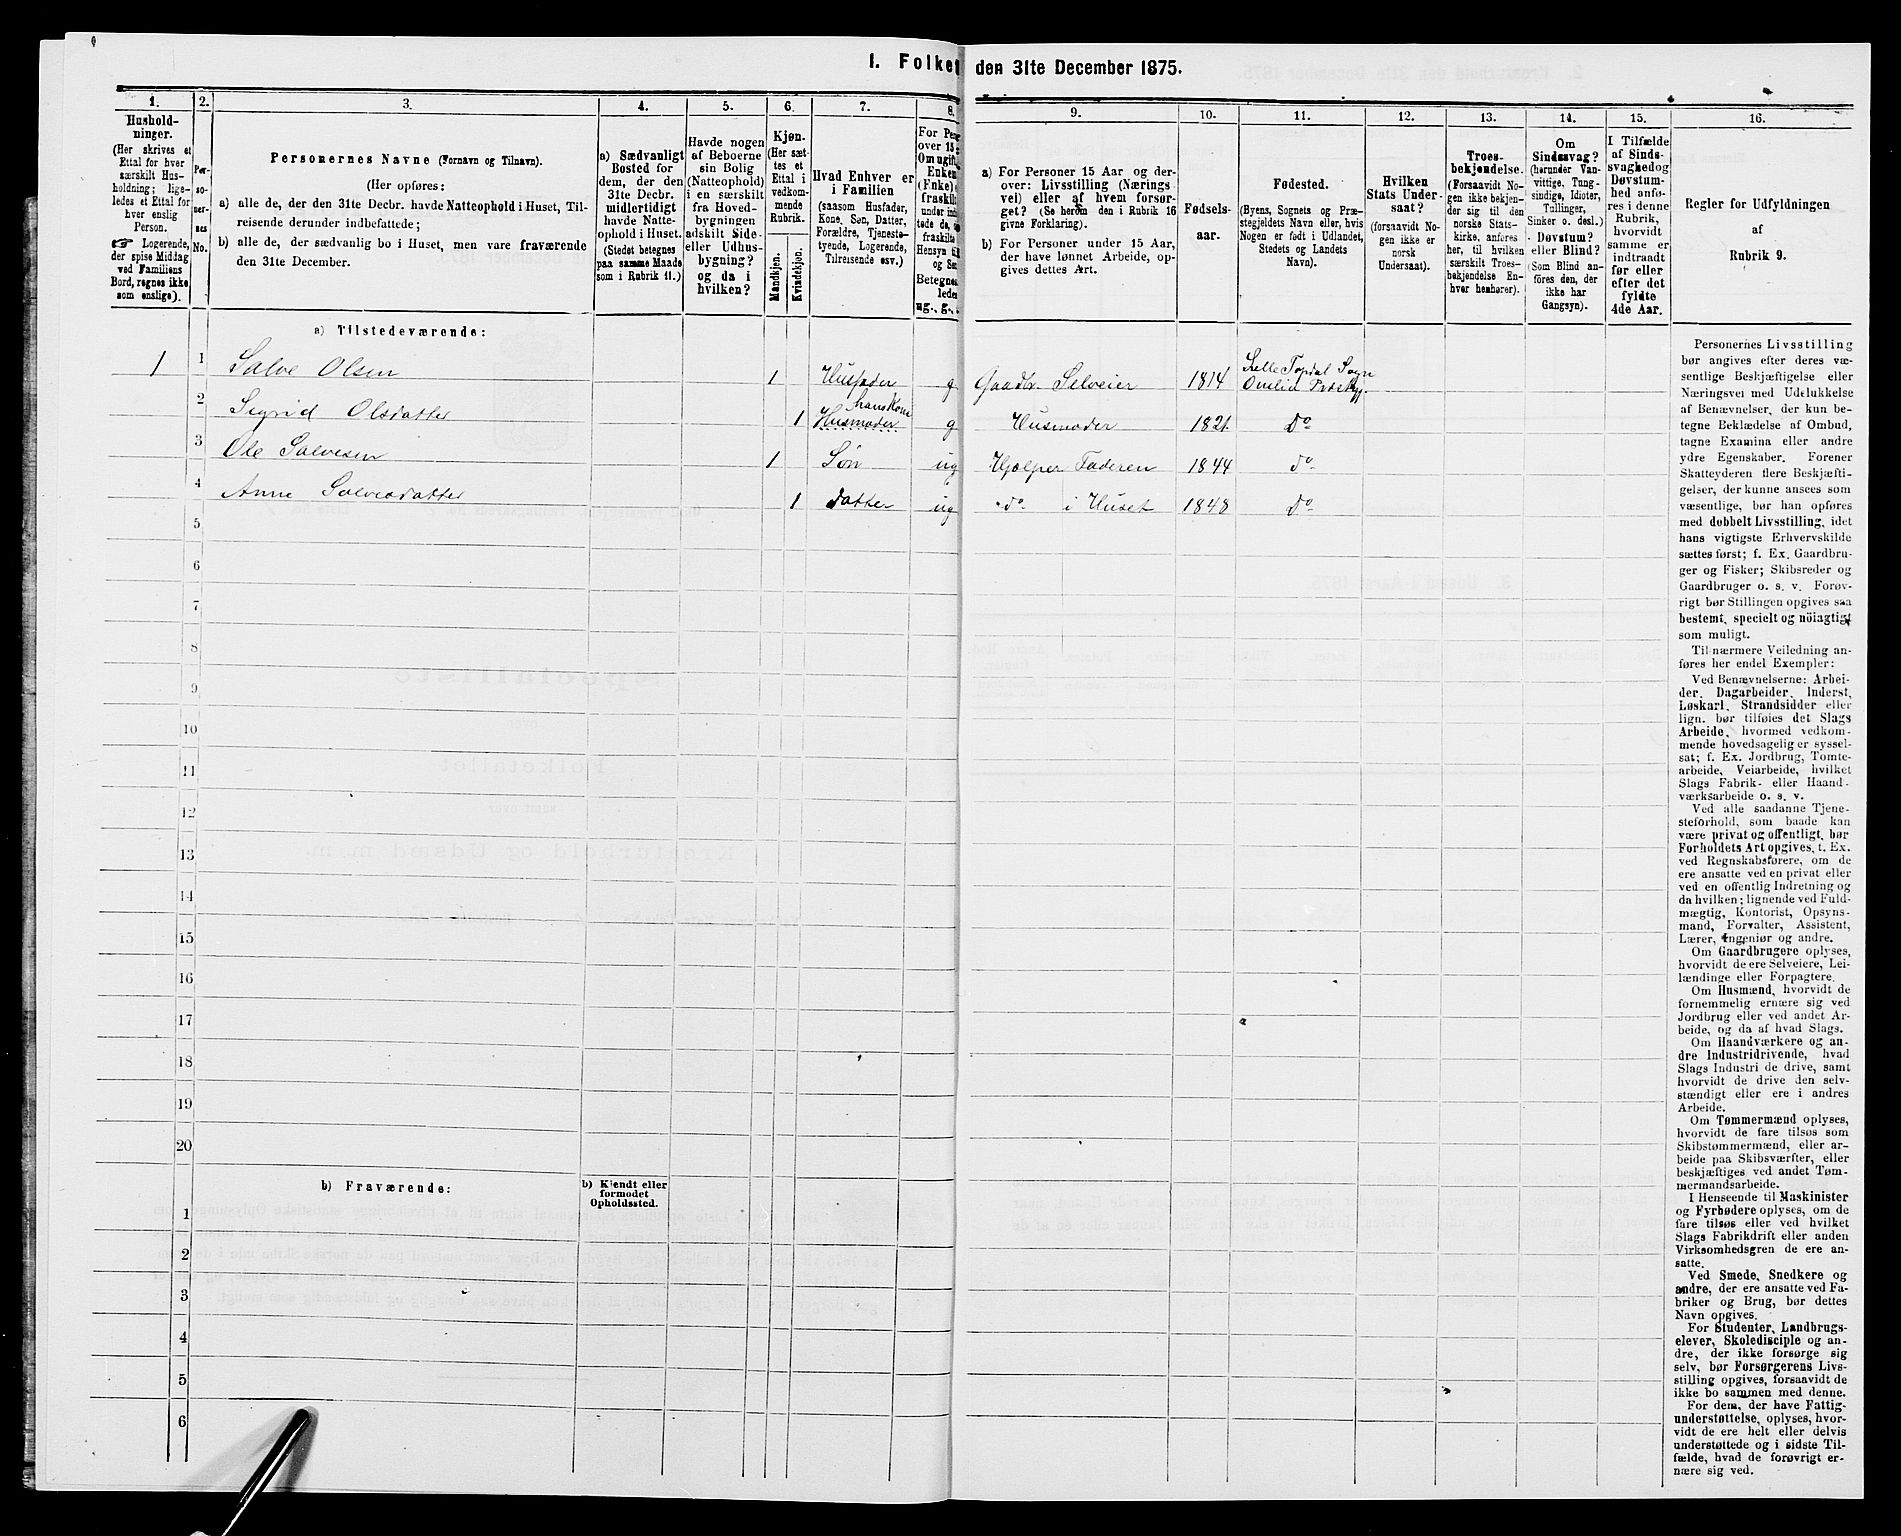 1. Folket den 31te December 1875.
1.
Hushold-
ninger.
(Her skrives et
Ettal for hver
særskilt Hus-
holdning; lige-
ledes et Ettal for
hver enslig
Person.
☞ Logerende,
der spise Middag
ved Familiens
Bord, regnes ikke
som enslige).
2.
Per-
so-
ner-
nes
No.
3.
Personernes Navne (Fornavn og Tilnavn).
(Her opføres:
a) alle de, der den 31te Decbr. havde Natteophold i Huset, Til-
reisende derunder indbefattede;
b) alle de, der sædvanlig bo i Huset, men vare fraværende
den 31te December.
4.
a) Sædvanligt
Bosted for
dem, der den
31te Decbr.
midlertidigt
havde Natte-
ophold i Huset.
(Stedet betegnes
paa samme Maade
som i Rubrik 11.)
5.
Havde nogen
af Beboerne
sin Bolig
(Natteophold)
i en særskilt
fra Hoved-
bygningen
adskilt Side-
eller Udhus-
bygning?
og da i
hvilken?
6.
Kjøn.
(Her sæt-
tes et
Ettal i
vedkom-
mende
Rubrik.
Mandkjøn.
Kvindekjøn.
7.
Hvad Enhver er
i Familien
(saasom Husfader,
Kone, Søn, Datter,
Forældre, Tjeneste-
tyende, Logerende,
Tilreisende osv.)
8.
For Pers
over 15
Om ugift
Enken
(Enke)
fraskilt
under
tede de,
fraskilte
Hensyn til
og Se
Betegnes
ledes
ug., g.,
9.
a) For Personer 15 Aar og der-
over: Livsstilling (Nærings
vei) eller af hvem forsør-
get? (Se herom den i Rubrik 16
givne Forklaring).
b) For Personer under 15 Aar,
der have lønnet Arbeide, op-
gives dettes Art.
10.
Fødsels-
aar.
11.
Fødested.
(Byens, Sognets og Præ-
stegjeldets Navn eller, hvis
Nogen er født i Udlandet,
Stedets og Landets
Navn).
12.
Hvilken
Stats Under-
saat?
(forsaavidt No-
gen ikke er
norsk
Undersaat).
13.
Troes-
bekjendelse.
(Forsaavidt No-
gen ikke bekjen-
der sig til den
norske Stats-
kirke, anføres
her, til hvilken
særskilt Troes-
bekjendelse En-
hver henhører).
14.
Om
Sindssvag?
(herunder Van-
vittige, Tung-
sindige, Idioter,
Tullinger,
Sinker o. desl.)
Døvstum?
eller Blind?
(Som Blind an-
føres den, der
ikke har
Gangsyn).
15.
I Tilfælde
af Sinds-
svaghed og
Døvstum-
hed anfø-
res i denne
Rubrik,
hvorvidt
samme er
indtraadt
før eller
efter det
fyldte
4de Aar.
16.
Regler for Udfyldningen
af
Rubrik 9.
a) Tilstedeværende:
1 1 Salve Olsen 1 Husfader g Gaardbr. Selveier 1814 Lille Topdal Sogn
Omlid Præstgj.
2 Sigrid Olsdatter 1 Husmoder hans Kone g Husmoder 1821 Do
3 Ole Salvesen 1 Søn ug Hjælper Faderen 1844 do
4 Anne Salvesdatter 1 datter ug do i Huset 1848 Do
5
6
7
8
9
10
11
12
13
14
15
16
17
18
19
20
b) Fraværende:
b) Kjendt eller
formodet
Opholdssted.
1
2
3
4
5
6
Personernes Livsstilling
bør angives efter deres væ-
sentlige Beskjæftigelse eller
Næringsvei med Udelukkelse
af Benævnelser, der kun be-
tegne Beklædelse af Ombud,
tagne Examina eller andre
ydre Egenskaber. Forener
Skatteyderen flere Beskjæfti-
gelser, der kunne ansees som
væsentlige, bør han opføres
med dobbelt Livsstilling, idet
hans vigtigste Erhvervskilde
sættes først; f. Ex. Gaardbru-
ger og Fisker; Skibsreder og
Gaardbruger o. s. v. Forøv-
rigt bør Stillingen opgives saa
bestemt, specielt og nöiagtigt
som muligt.
Til nærmere Veiledning an-
føres her endel Exempler:
Ved Benævnelserne: Arbei-
der, Dagarbeider, Inderst,
Løskarl, Strandsidder eller
lign. bør tilføies det Slags
Arbeide, hvormed vedkom-
mende hovedsagelig er syssel-
sat; f. Ex. Jordbrug, Tomte-
arbeide, Veiarbeide, hvilket
Slags Fabrik- eller Haand-
værksarbeide o. s. v.
Ved alle saadanne Tjene-
steforhold, som baade kan
være privat og offentligt, bør
Forholdets Art opgives, t. Ex.
ved Regnskabsførere, om de
ere ansatte ved en privat eller
ved en offentlig Indretning og
da hvilken; lignende ved Fuld-
mægtig, Kontorist, Opsyns-
mand, Forvalter, Assistent,
Lærer, Ingeniør og andre.
Om Gaardbrugere oplyses,
hvorvidt de ere Selveiere, Lei-
lændinge eller Forpagtere.
Om Husmænd, hvorvidt de
fornemmelig ernære sig ved
Jordbrug eller ved andet Ar-
beide, og da af hvad Slags.
Om Haandværkere og an-
dre Industridrivende, hvad
Slags Industri de drive, samt
hvorvidt de drive den selv-
stændigt eller ere i andres
Arbeide.
Om Tømmermænd oplyses,
hvorvidt de fare tilsøs som
Skibstømmermænd, eller ar-
beide paa Skibsværfter, eller
beskjæftiges ved andet Tøm-
mermandsarbeide.
I Henseende til Maskinister
og Fyrbødere oplyses, om de
fare tilsøs eller ved hvilket
Slags Fabrikdrift eller anden
Virksomhedsgren de ere an-
satte.
Ved Smede, Snedkere og
andre, der ere ansatte ved Fa-
briker og Brug, bør dettes
Navn opgives.
For Studenter, Landbrugs-
elever, Skoledisciple og an-
dre, der ikke forsørge sig
selv, bør Forsørgerens Livs-
stilling opgives, forsaavidt de
ikke bo sammen med denne.
For dem, der have Fattig-
understøttelse, oplyses, hvor-
vidt de ere helt eller delvis
understøttede og i sidste Til-
fælde, hvad de forøvrigt er-
nære sig ved.